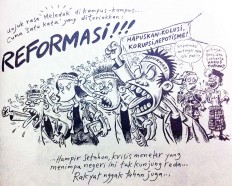 unjuk rasa 'Meledak' di kampus-kampus...
Cuma 'satu kata' yang diteriakkan:
REFORMASI!!!
HAPUSKAN KOLUSI,
KORUPSI, NEPOTISME!
Hampir setahun, krisis moneter yang
menimpa negeri ini tak kunjung reda...
Rakyat nggak tahan juga...